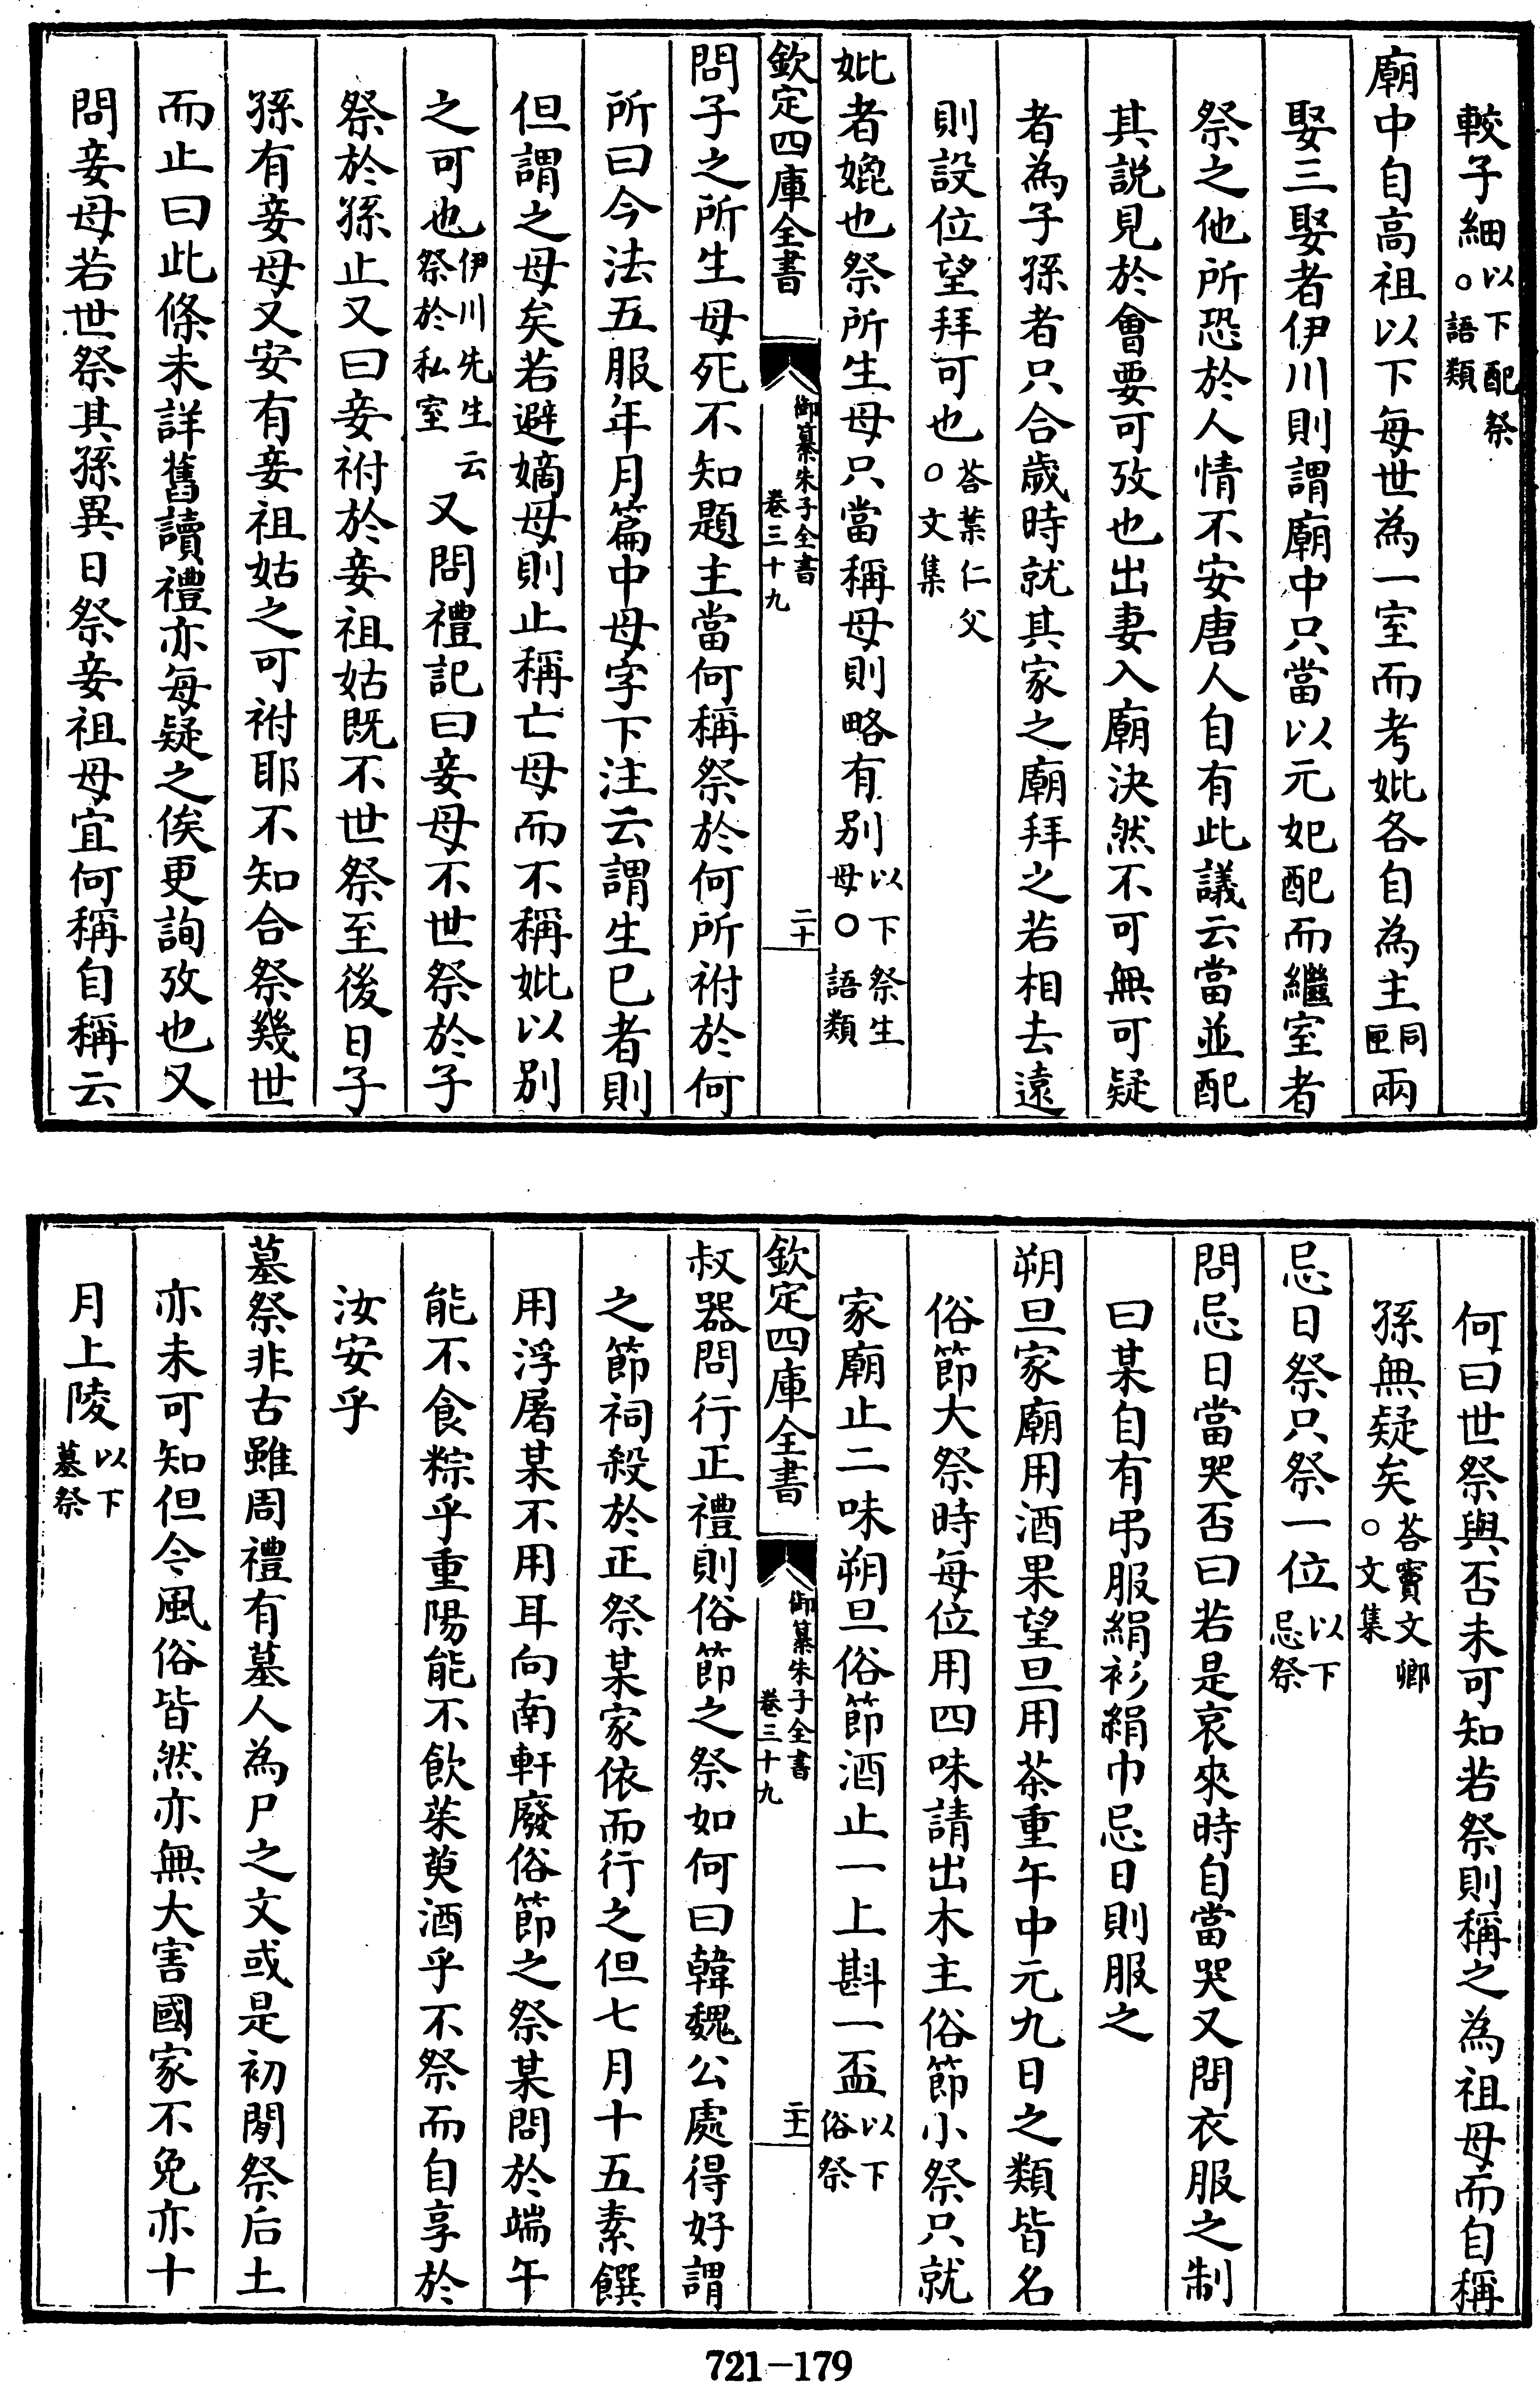 較子細以下配祭○語類
廟中自高祖以下每世為一室而考妣各自為主同匣兩
娶三娶者伊川則謂廟中只當以元妃配而繼室者
祭之他所恐於人情不安唐人自有此議云當並配
其説見於會要可攷也出妻入廟決然不可無可疑
者為子孫者只合歲時就其家之廟拜之若相去遠
則設位望拜可也荅葉仁父○文集
妣者媲也祭所生母只當稱母則略有别以下祭生母○語類
欽定四庫全書
御纂朱子全書
卷三十九
二十
問子之所生母死不知題主當何稱祭於何所祔於何
所曰今法五服年月篇中母字下注云謂生已者則
但謂之母矣若避嫡母則止稱亡母而不稱妣以别
之可也伊川先生云祭於私室又問禮記曰妾母不世祭於子
祭於孫止又曰妾祔於妾祖姑既不世祭至後日子
孫有妾母又安有妾祖姑之可祔耶不知合祭幾世
而止曰此條未詳舊讀禮亦每疑之俟更詢攷也又
問妾母若世祭其孫異日祭妾祖母宜何稱自稱云
何曰世祭與否未可知若祭則稱之為祖母而自稱
孫無疑矣荅竇文卿○文集
忌日祭只祭一位以下忌祭
問忌日當哭否曰若是哀來時自當哭又問衣服之制
曰某自有弔服絹衫絹巾忌日則服之
朔旦家廟用酒果望旦用茶重午中元九日之類皆名
俗節大祭時每位用四味請出木主俗節小祭只就
家廟止二味朔旦俗節酒止一上斟一盃以下俗祭
欽定四庫全書
御纂朱子全書
卷三十九
二十一
叔器問行正禮則俗節之祭如何曰韓魏公處得好謂
之節祠殺於正祭某家依而行之但七月十五素饌
用浮屠某不用耳向南軒廢俗節之祭某問於端午
能不食粽乎重陽能不飲茱萸酒乎不祭而自享於
汝安乎
墓祭非古雖周禮有墓人為尸之文或是初閒祭后土
亦未可知但今風俗皆然亦無大害國家不免亦十
月上陵以下墓祭
721-179